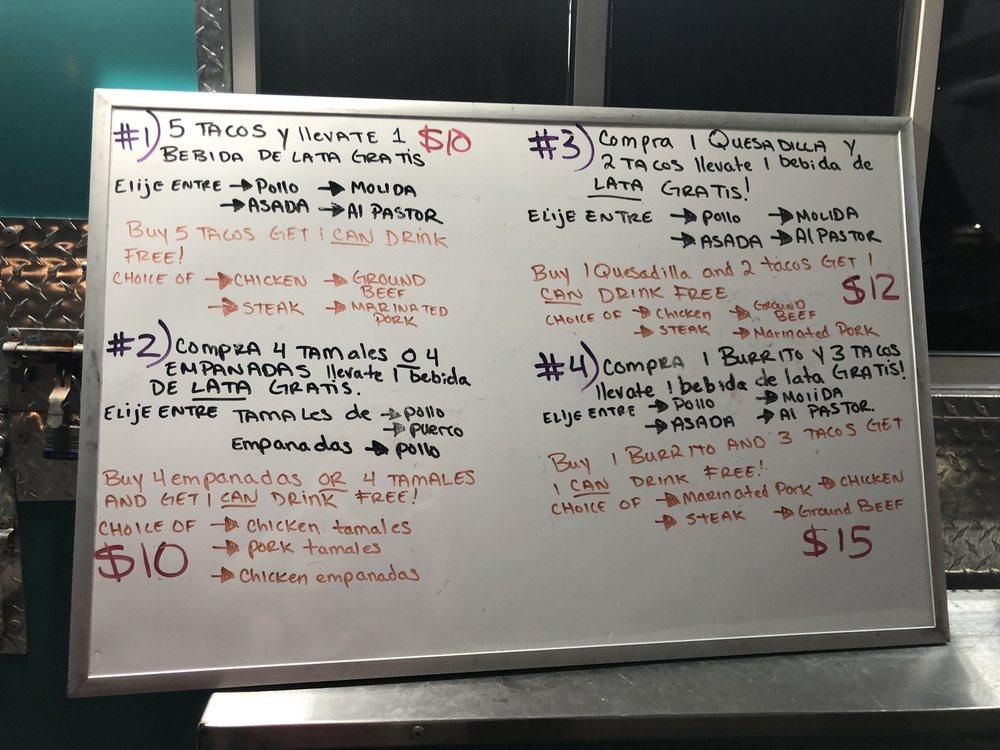 #1) 5 TACOS y llevate 1 $10
BEBIDA DE LATA GRATIS
Elije ENTRE → Pollo → MOLIDA
→ ASADA → Al PASTOR
Buy 5 TACOS GET 1 CAN DRINK
FREE!
CHOICE OF → CHICKEN → GROUND
BEEF
→ STEAK → MARINATED
PORK
#2) COMPRA 4 TAMALES O 4
EMPANADAS llevate 1 bebida
DE LATA GRATIS.
Elije ENTRE TAMALES de → pollo
→ puerco
Empanadas → pollo
Buy 4 empanadas OR 4 TAMALES
AND GET 1 CAN DRINK FREE!
CHOICE OF → Chicken tamales
$10 → PORK tamales
→ Chicken empanadas
#3) Compra 1 QUESADILLA Y
2 TACOS llevate 1 bebida de
LATA GRATIS!
Elije ENTRE → pollo → MOLIDA
→ ASADA → Al PASTOR
Buy 1 Quesadilla and 2 tacos GET 1
CAN DRINK FREE $12
CHOICE OF → Chicken → GROUND
BEEF
→ STEAK → Marinated PORK
#4) Compra 1 BURRITO Y 3 TACOS
llevate 1 bebida de lata GRATIS!
Elije ENTRE → Pollo → MOlIDA
→ ASADA → Al PASTOR.
Buy 1 BURRITO AND 3 TACOS GET
1 CAN DRINK FREE!
CHOICE OF → Marinated Pork → CHICKEN
→ STEAK → Ground BEEF
$15